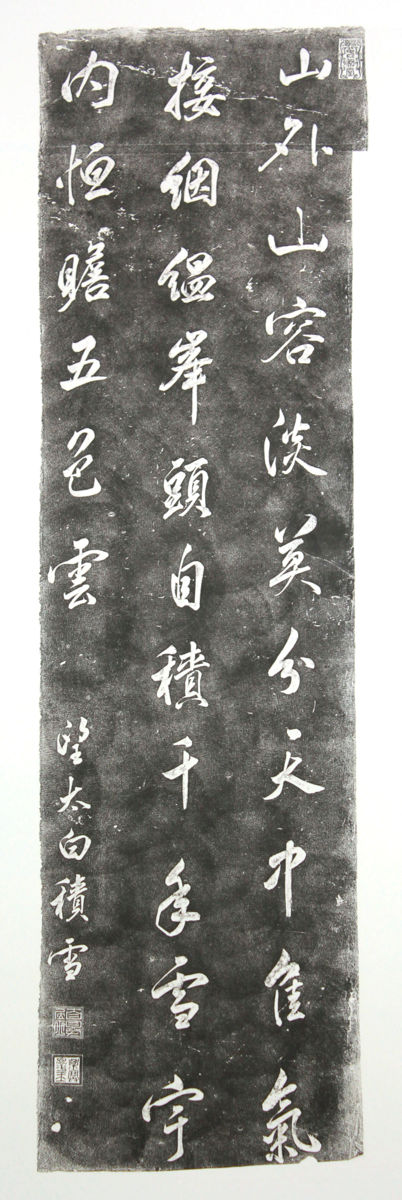 山外山容淡莫分天中佳氣
接絪縕峯頭自積千年雪宇
內恒瞻五色雲
望太白積雪